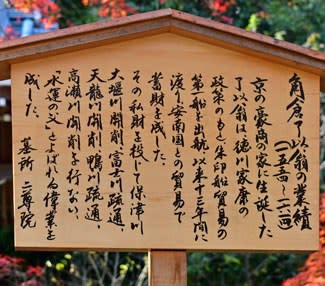 角倉了以翁の業績
(一五五四〜一六一四)
京の豪商の家に生誕した
了以翁は徳川家康の
政策のもと朱印船貿易の
第一船を出航以来十三年間に
渡り安南国との貿易で
蓄財を成した。
その私財を投じて保津川
大堰川開削、富士川疏通、
天龍川開削、鴨川疏通、
高瀬川開削を行ない、
水運の父とよばれる偉業を
成した。
墓所 二尊院